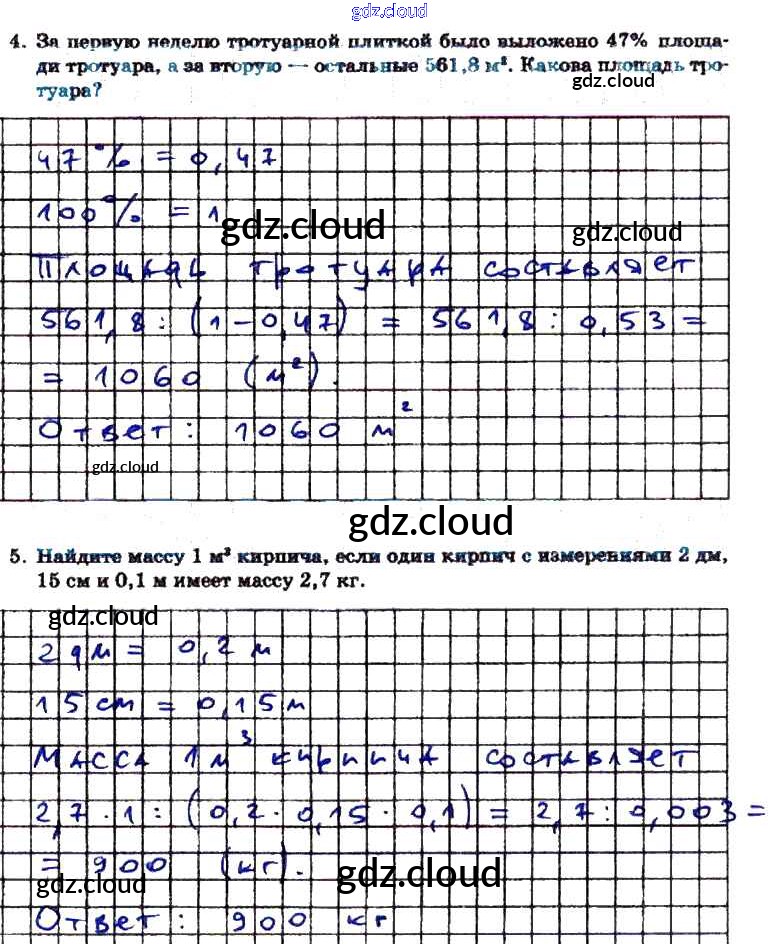 gdz.cloud
4. За первую неделю тротуарной плиткой было выложено 47% площа-
ди тротуара, а за вторую — остальные 561,8 м². Какова площадь тро-
gdz.cloud
туара?
47% = 0,47
100% = 1
gdz.cloud
gdz.cloud
Площадь тротуара составляет
561,8 : (1 – 0,47) = 561,8 : 0,53 =
= 1060 (м²).
Ответ: 1060 м²
gdz.cloud
gdz.cloud
5. Найдите массу 1 м³ кирпича, если один кирпич с измерениями 2 дм,
15 см и 0,1 м имеет массу 2,7 кг.
gdz.cloud
2 дм = 0,2 м
15 см = 0,15 м
Масса 1 м³ кирпича составляет
2,7 · 1 : (0,2 · 0,15 · 0,1) = 2,7 : 0,003 =
= 900 (кг).
gdz.cloud
gdz.cloud
Ответ: 900 кг